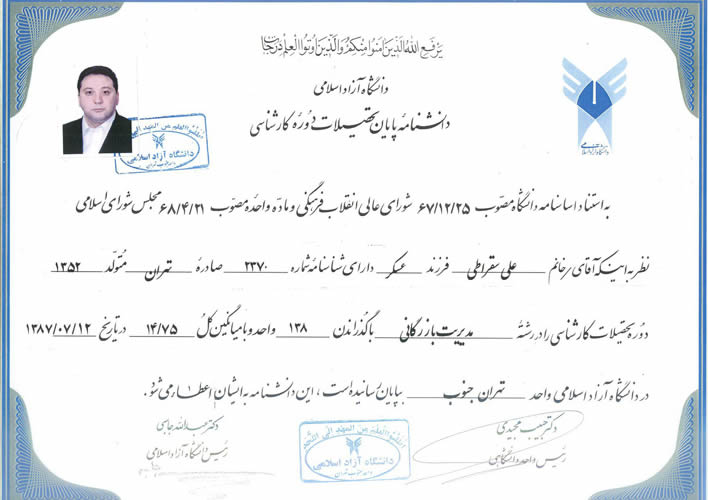 یَرْفَعِ اللهُ الَّذِینَ آمَنُوا مِنْکُمْ وَالَّذِینَ أُوتُوا الْعِلْمَ دَرَجَاتٍ
دانشگاه آزاد اسلامی
دانشنامهٔ پایان تحصیلات دورهٔ کارشناسی
اطلبوا العلم من المهد الی اللحد
دانشگاه آزاد اسلامی
دانشگاه آزاد اسلامی
به استناد اساسنامه دانشگاه مصوب ۶۷/۱۲/۲۵ شورای عالی انقلاب فرهنگی و ماده واحده مصوب ۶۸/۴/۲۱ مجلس شورای اسلامی
نظر به اینکه آقای / خانم علی سقراطی فرزند عسکر دارای شناسنامه شماره ۲۳۷۰ صادرهٔ تهران متولّد ۱۳۵۲
دوره تحصیلات کارشناسی را در رشته مدیریت بازرگانی با گذراندن ۱۳۸ واحد و با میانگین کل ۱۴/۷۵ در تاریخ ۱۳۸۷/۰۷/۱۲
در دانشگاه آزاد اسلامی واحد تهران جنوب بپایان رسانیده است، این دانشنامه به ایشان اعطاء می شود.
دکتر حبیب مجیدی
رئیس واحد دانشگاهی
اطلبوا العلم من المهد الی اللحد
دانشگاه آزاد اسلامی
واحد جنوب تهران
دکتر عبدالله جاسبی
رئیس دانشگاه آزاد اسلامی